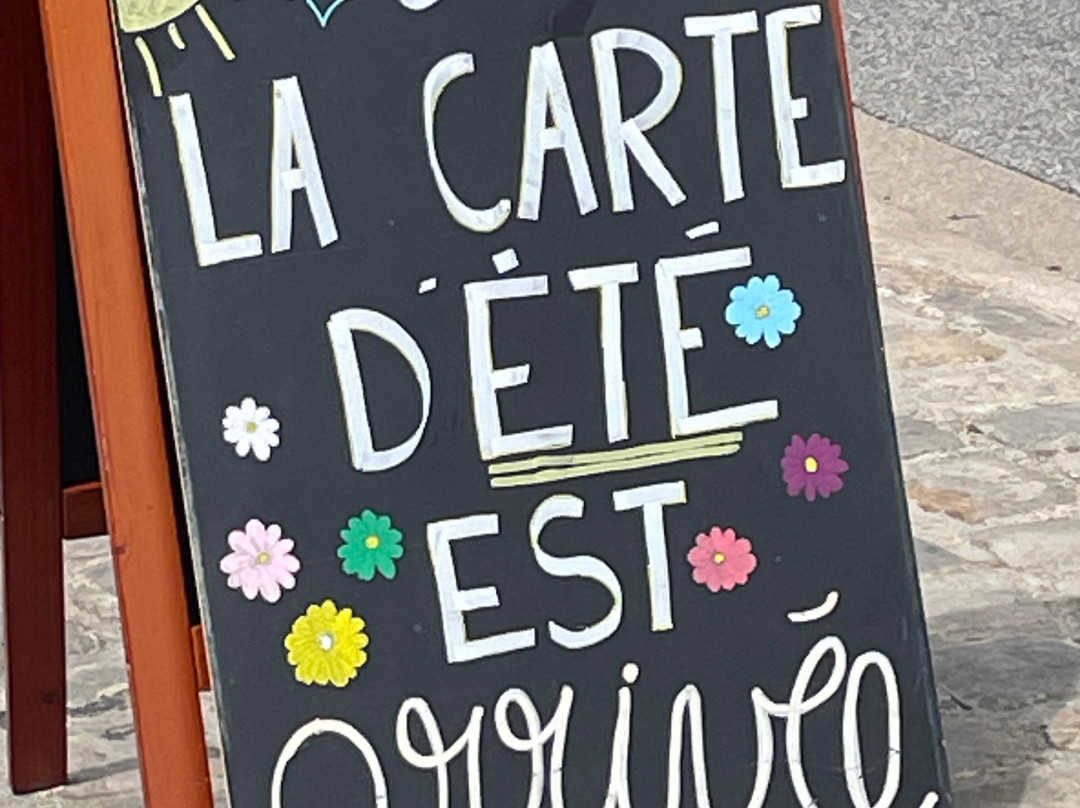 LA CARTE
D'ÉTÉ
EST
arrivée